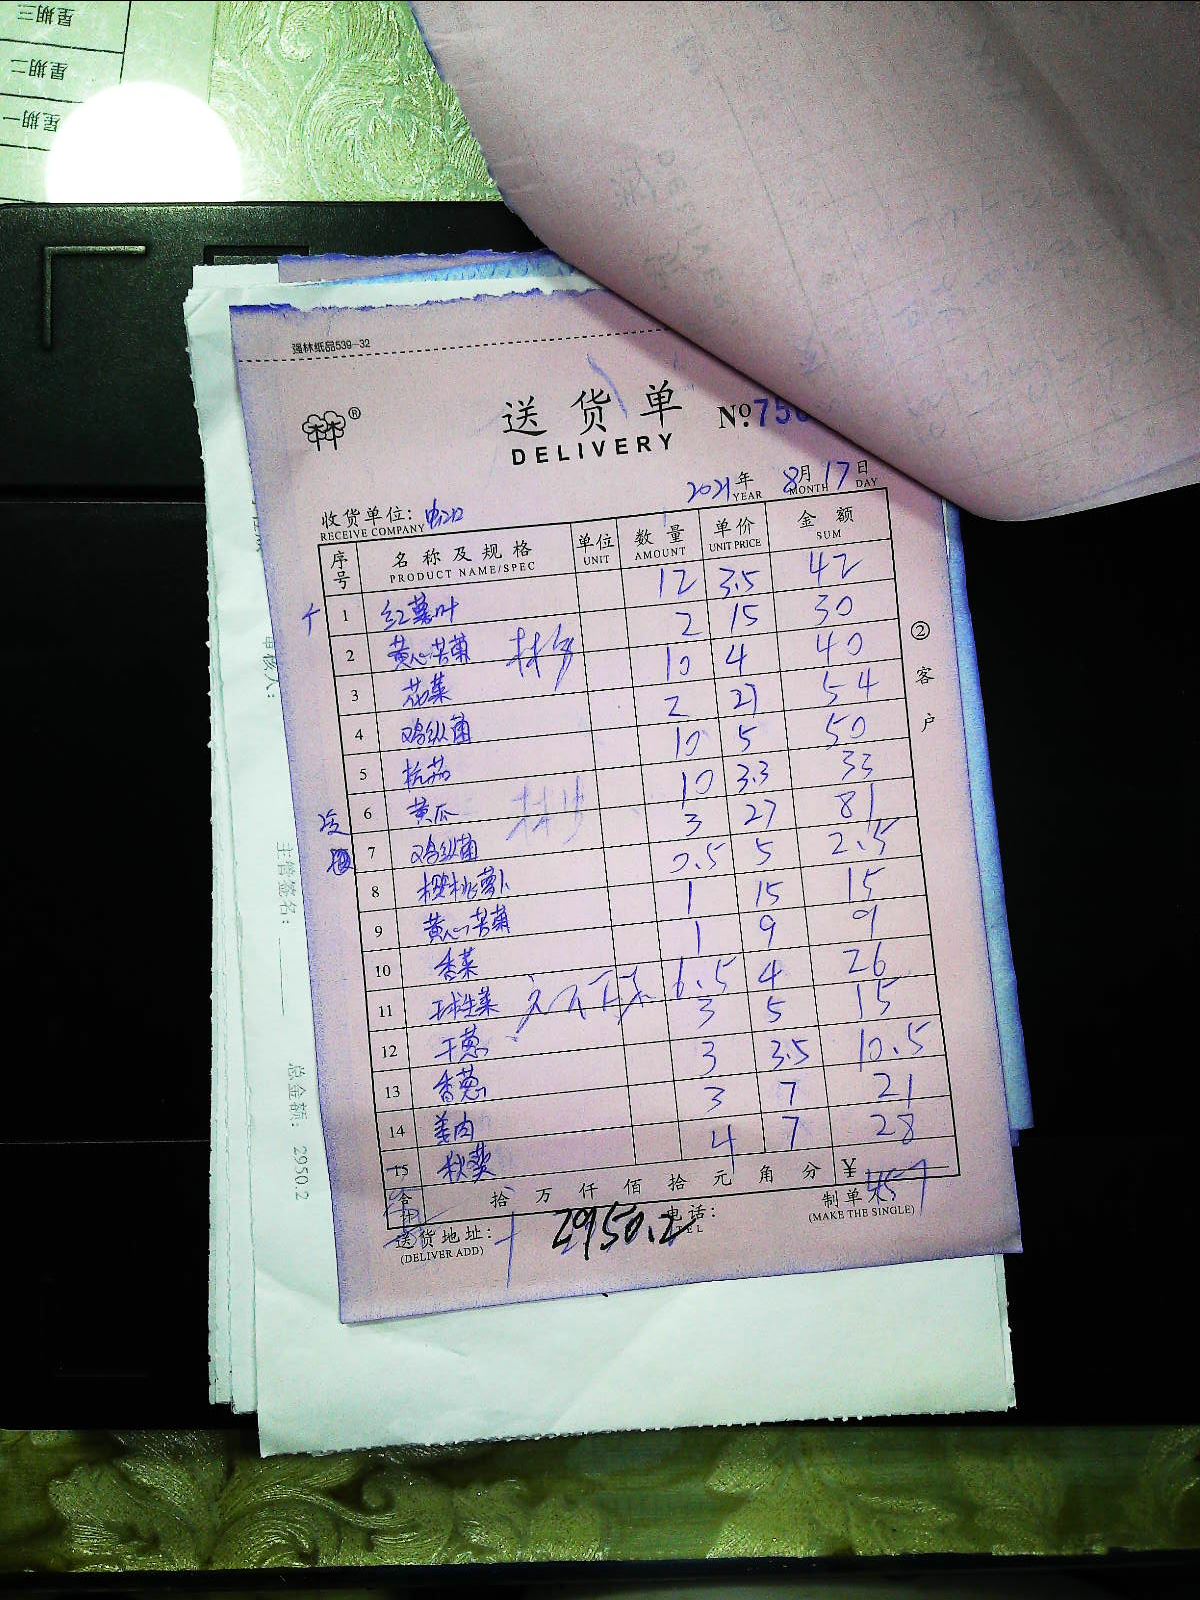 星期三
星期二
星期一
强林纸品539-32
林 ®
送货单
DELIVERY
№.750
2021年 8月 17日
YEAR MONTH DAY
收货单位:
RECEIVE COMPANY
序号 名称及规格 单位 数量 单价 金额
PRODUCT NAME/SPEC UNIT AMOUNT UNIT PRICE SUM
1 红薯叶 12 3.5 42
2 黄心苦菊 2 15 30
3 花菜 10 4 40
4 鸡纵菌 2 27 54
5 杭茄 10 5 50
6 黄瓜 10 3.3 33
7 鸡纵菌 3 27 81
8 樱桃萝卜 0.5 5 2.5
9 黄心苦菊 1 15 15
10 香菜 1 9 9
11 球生菜 6.5 4 26
12 干葱 3 5 15
13 香葱 3 3.5 10.5
14 姜肉 3 7 21
15 秋葵 4 7 28
合计 拾 万 仟 佰 拾 元 角 分 ¥ 457
送货地址: 电话: 制单人:
(DELIVER ADD) TEL (MAKE THE SINGLE)
2950.2
②客户
审核人:
主管签名:
总金额: 2950.2